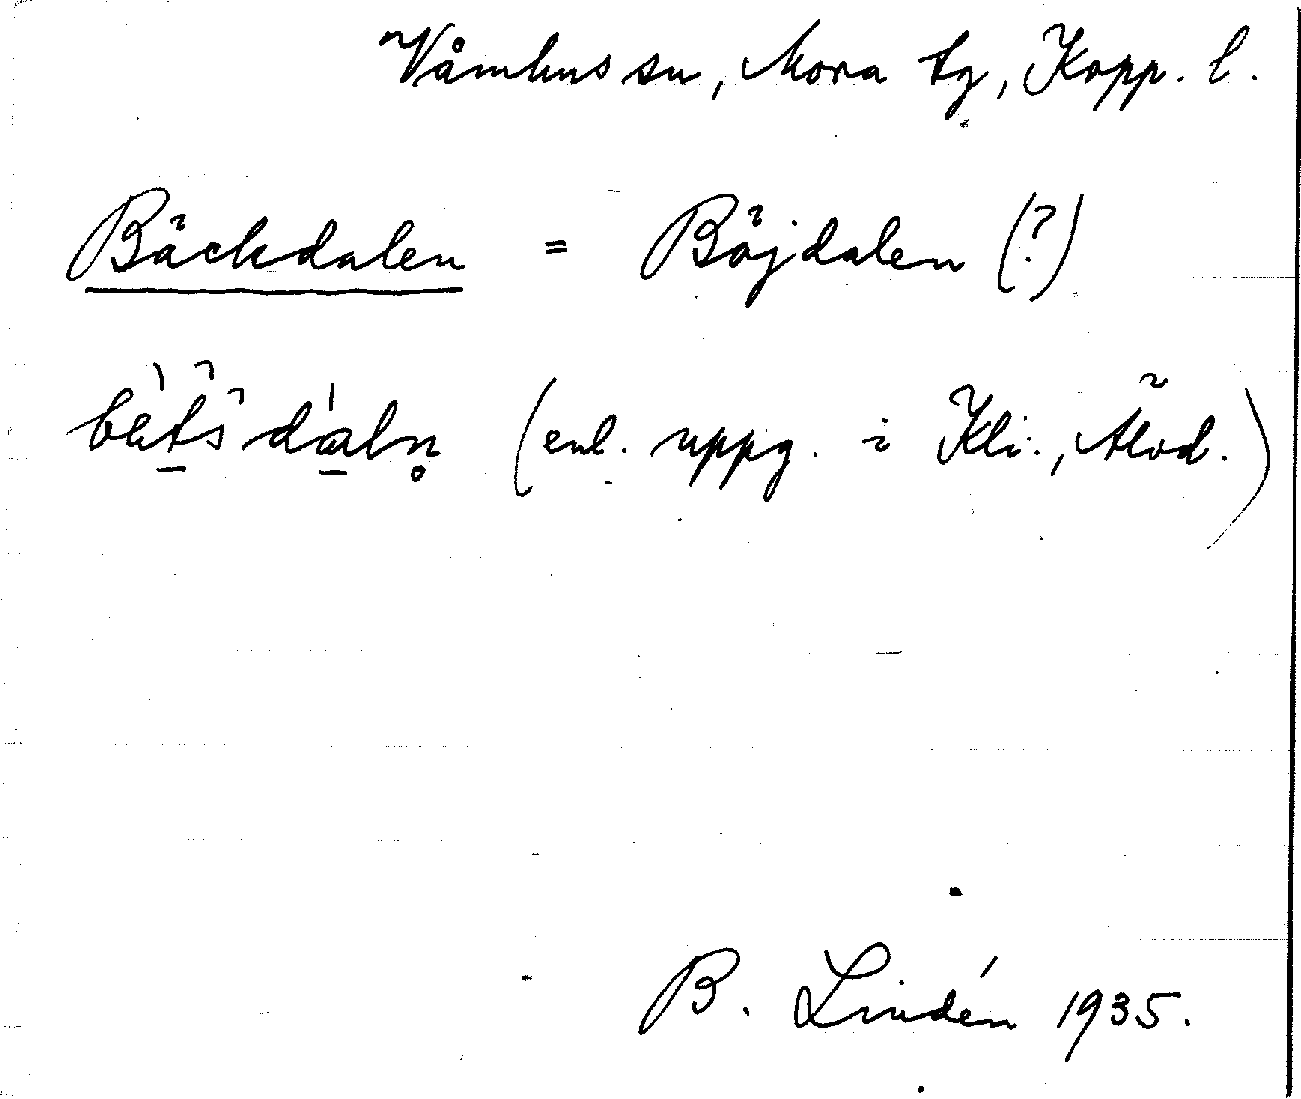 Våmhus sn, Mora tg, Kopp. l.
Bäckdalen = Böjdalen (?)
(enl. uppg. i Kli., Älvd.)
B. Lindén 1935.